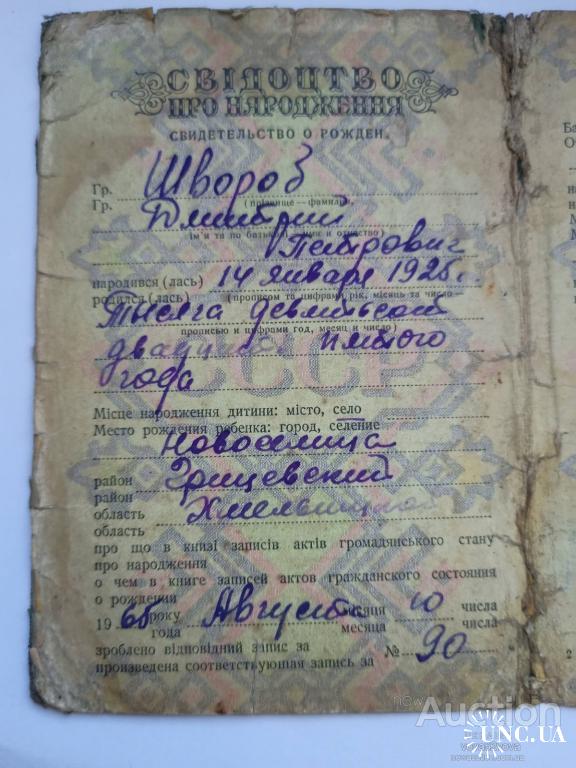 СВІДОЦТВО
ПРО НАРОДЖЕННЯ
СВИДЕТЕЛЬСТВО О РОЖДЕН
Гр. Швороб
Гр. (прізвище — фамилия)
Дмитрий
Петрович
народився (лась) 14 января 1925 г.
родился (лась) (прописом та цифрами рік, місяць та число
тысяча девятьсот
прописью и цифрами год, месяц и число)
двадцать пятого
года
СССР
Місце народження дитини: місто, село
Место рождения ребенка: город, селение
Новоселица
район Грицевский
район
область Хмельницкая
область
про що в книзі записів актів громадянського стану
про народження
о чем в книге записей актов гражданского состояния
о рождении
1965 року Август місяця 10 числа
года месяца числа
зроблено відповідний запис за № 90
произведена соответствующая запись за
Auction
UNC.UA